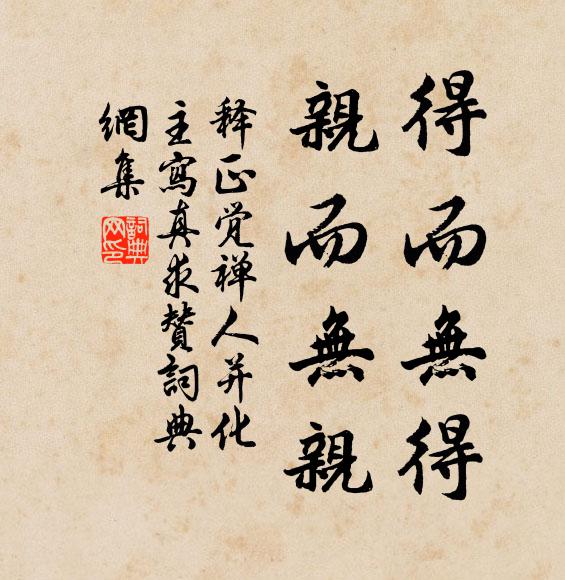 得而無得
親而無親
释正觉禅人并化
主寫真求贊詞典
網集
詞典网印